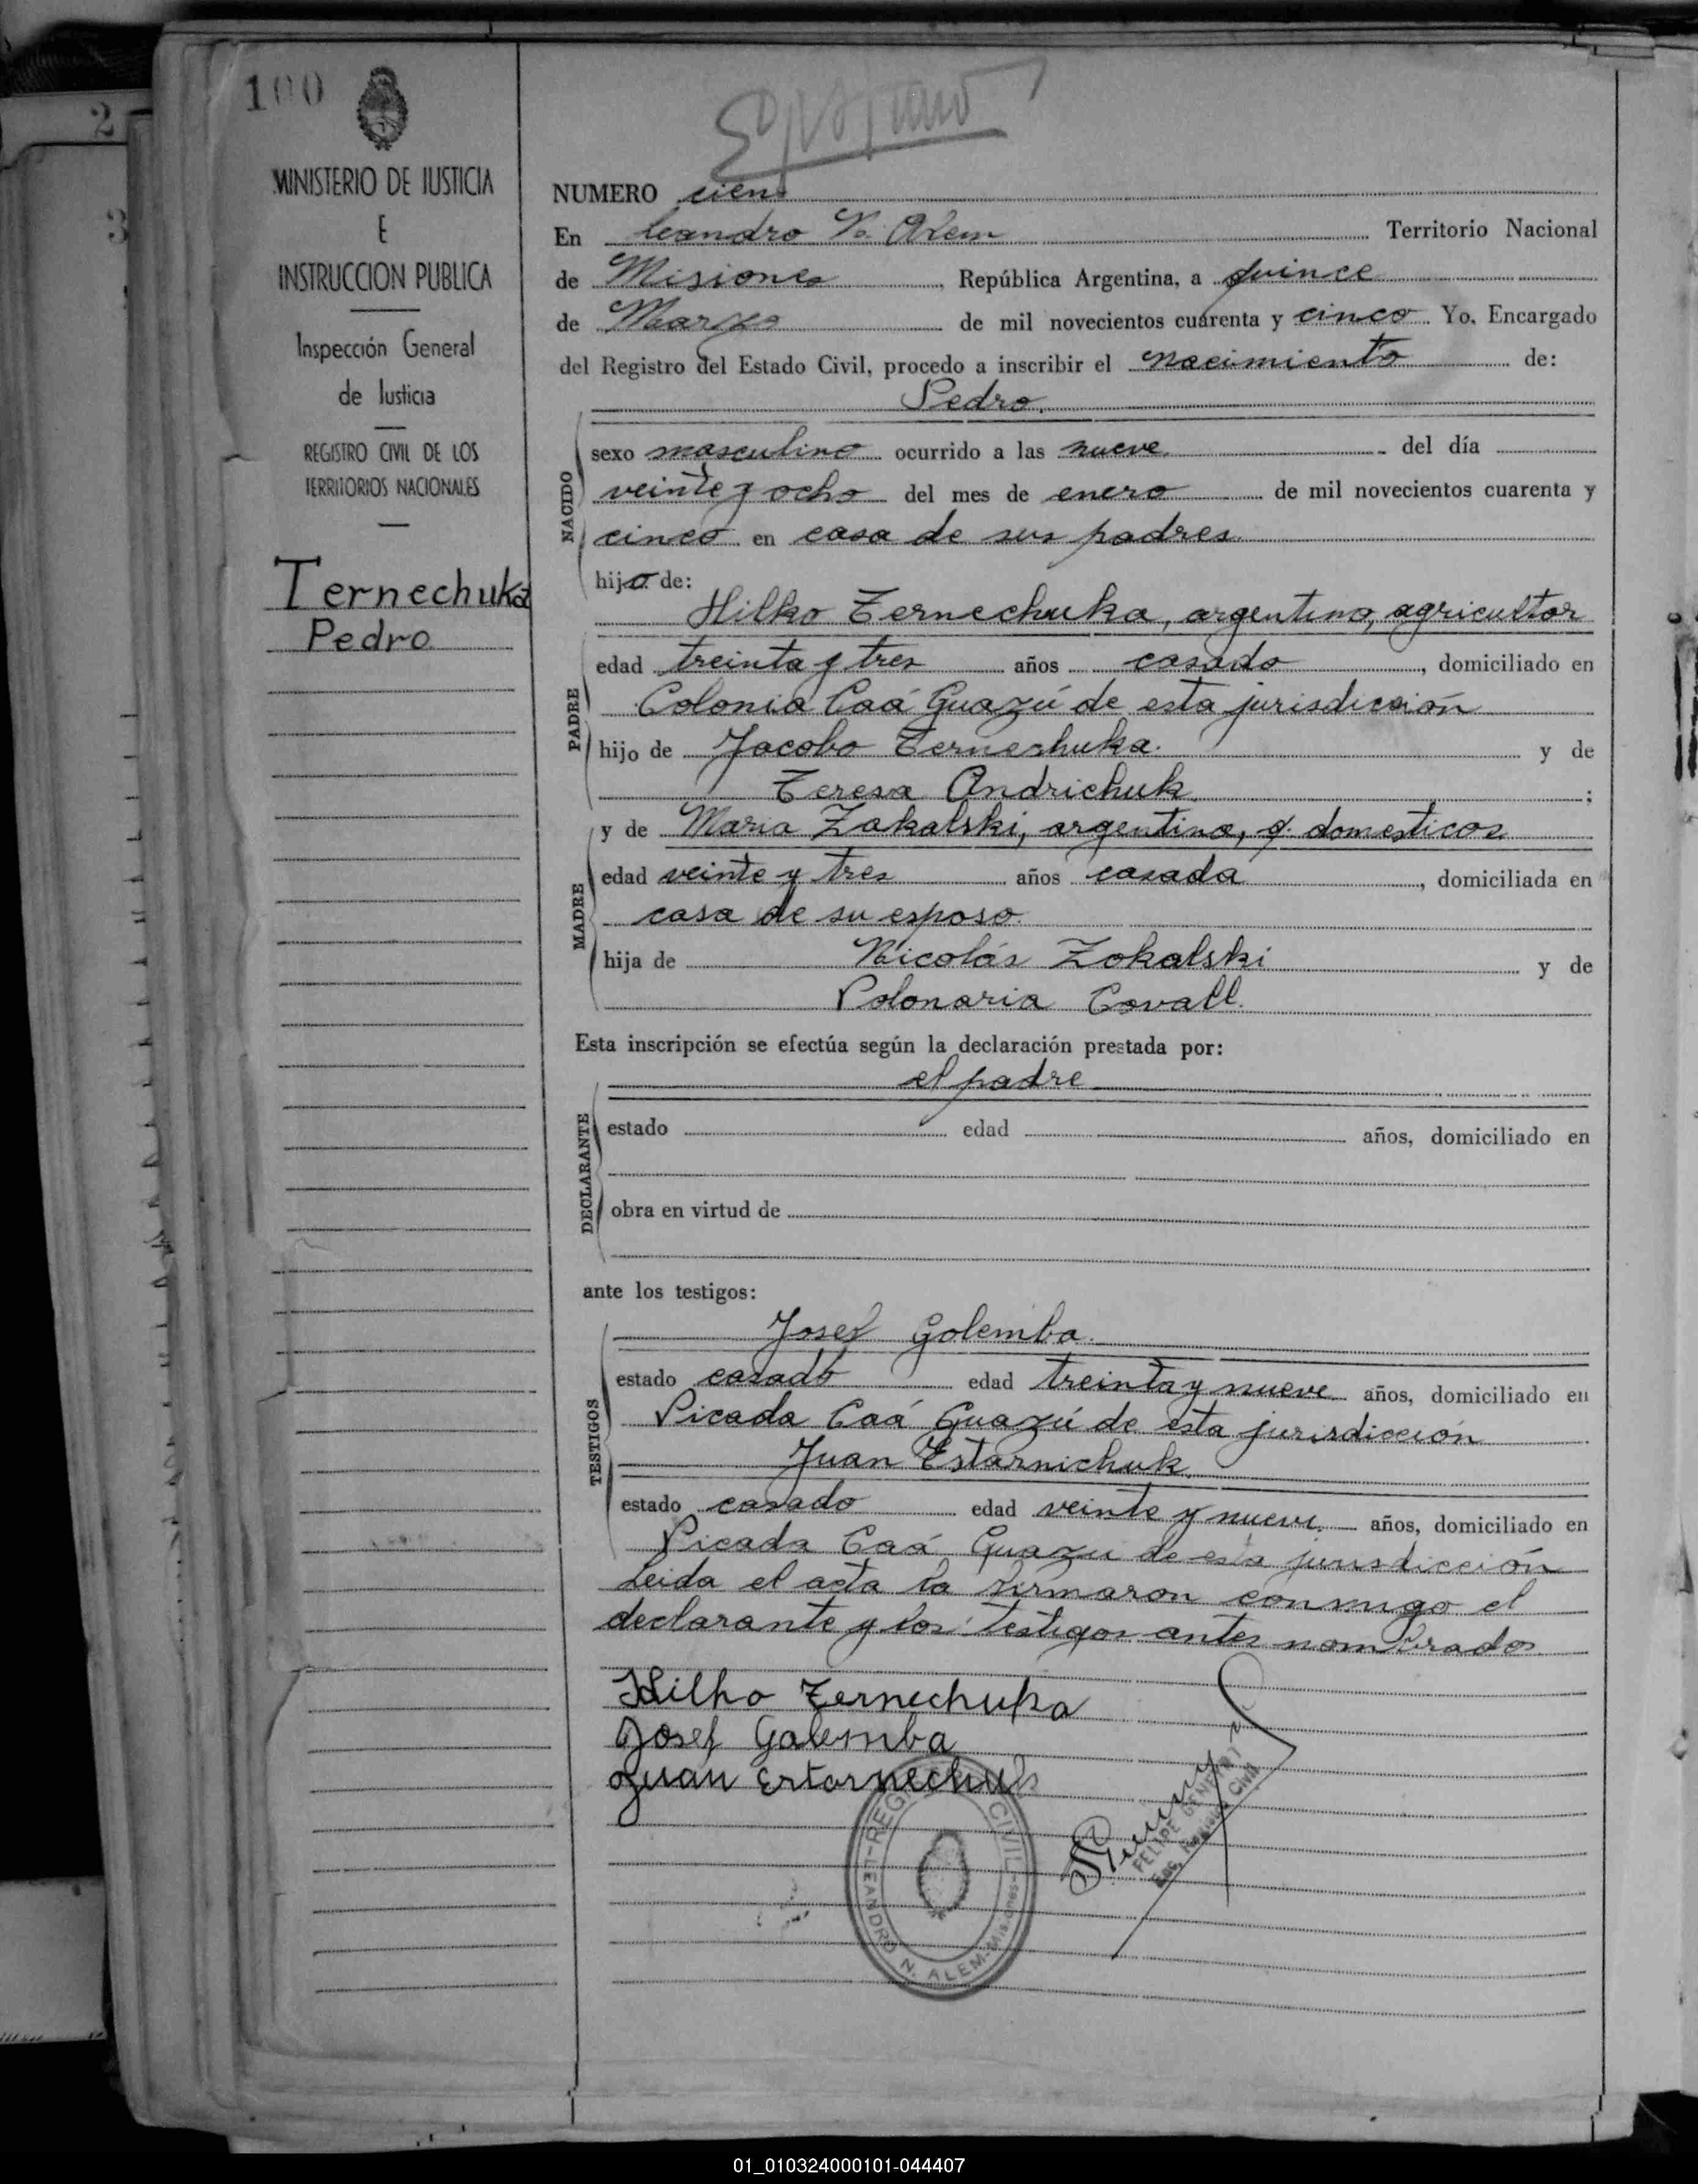 100
MINISTERIO DE JUSTICIA
E
INSTRUCCION PUBLICA
Inspección General
de Justicia
REGISTRO CIVIL DE LOS
TERRITORIOS NACIONALES
Ternechuka
Pedro
NUMERO cien
En Leandro N. Alem Territorio Nacional
de Misiones, República Argentina, a quince
de Marzo de mil novecientos cuarenta y cinco Yo, Encargado
del Registro del Estado Civil, procedo a inscribir el nacimiento de:
Pedro
NACIDO
sexo masculino ocurrido a las nueve del día
veinte y ocho del mes de enero de mil novecientos cuarenta y
cinco en casa de sus padres
hijo de:
PADRE
Hilko Ternechuka, argentino, agricultor
edad treinta y tres años casado, domiciliado en
Colonia Caá Guazú de esta jurisdicción
hijo de Jacobo Ternechuka y de
Teresa Andrichuk;
MADRE
y de Maria Zakalski, argentina, q. domesticos
edad veinte y tres años casada, domiciliada en
casa de su esposo
hija de Nicolás Zokalski y de
Polonaria Covall.
Esta inscripción se efectúa según la declaración prestada por:
el padre
DECLARANTE
estado edad años, domiciliado en
obra en virtud de
ante los testigos:
TESTIGOS
Josef Golemba.
estado casado edad treinta y nueve años, domiciliado en
Picada Caá Guazú de esta jurisdicción
Juan Estarnichuk
estado casado edad veinte y nueve años, domiciliado en
Picada Caá Guazu de esta jurisdicción
Leida el acta la firmaron conmigo el
declarante y los testigos antes nombrados
Hilko Ternechuka
Josef Galemba
Juan Estarnechuk
REGISTRO CIVIL
LEANDRO N. ALEM-Misiones-
FELIPE
Enc. Registro Civil
2
3
01_010324000101-044407